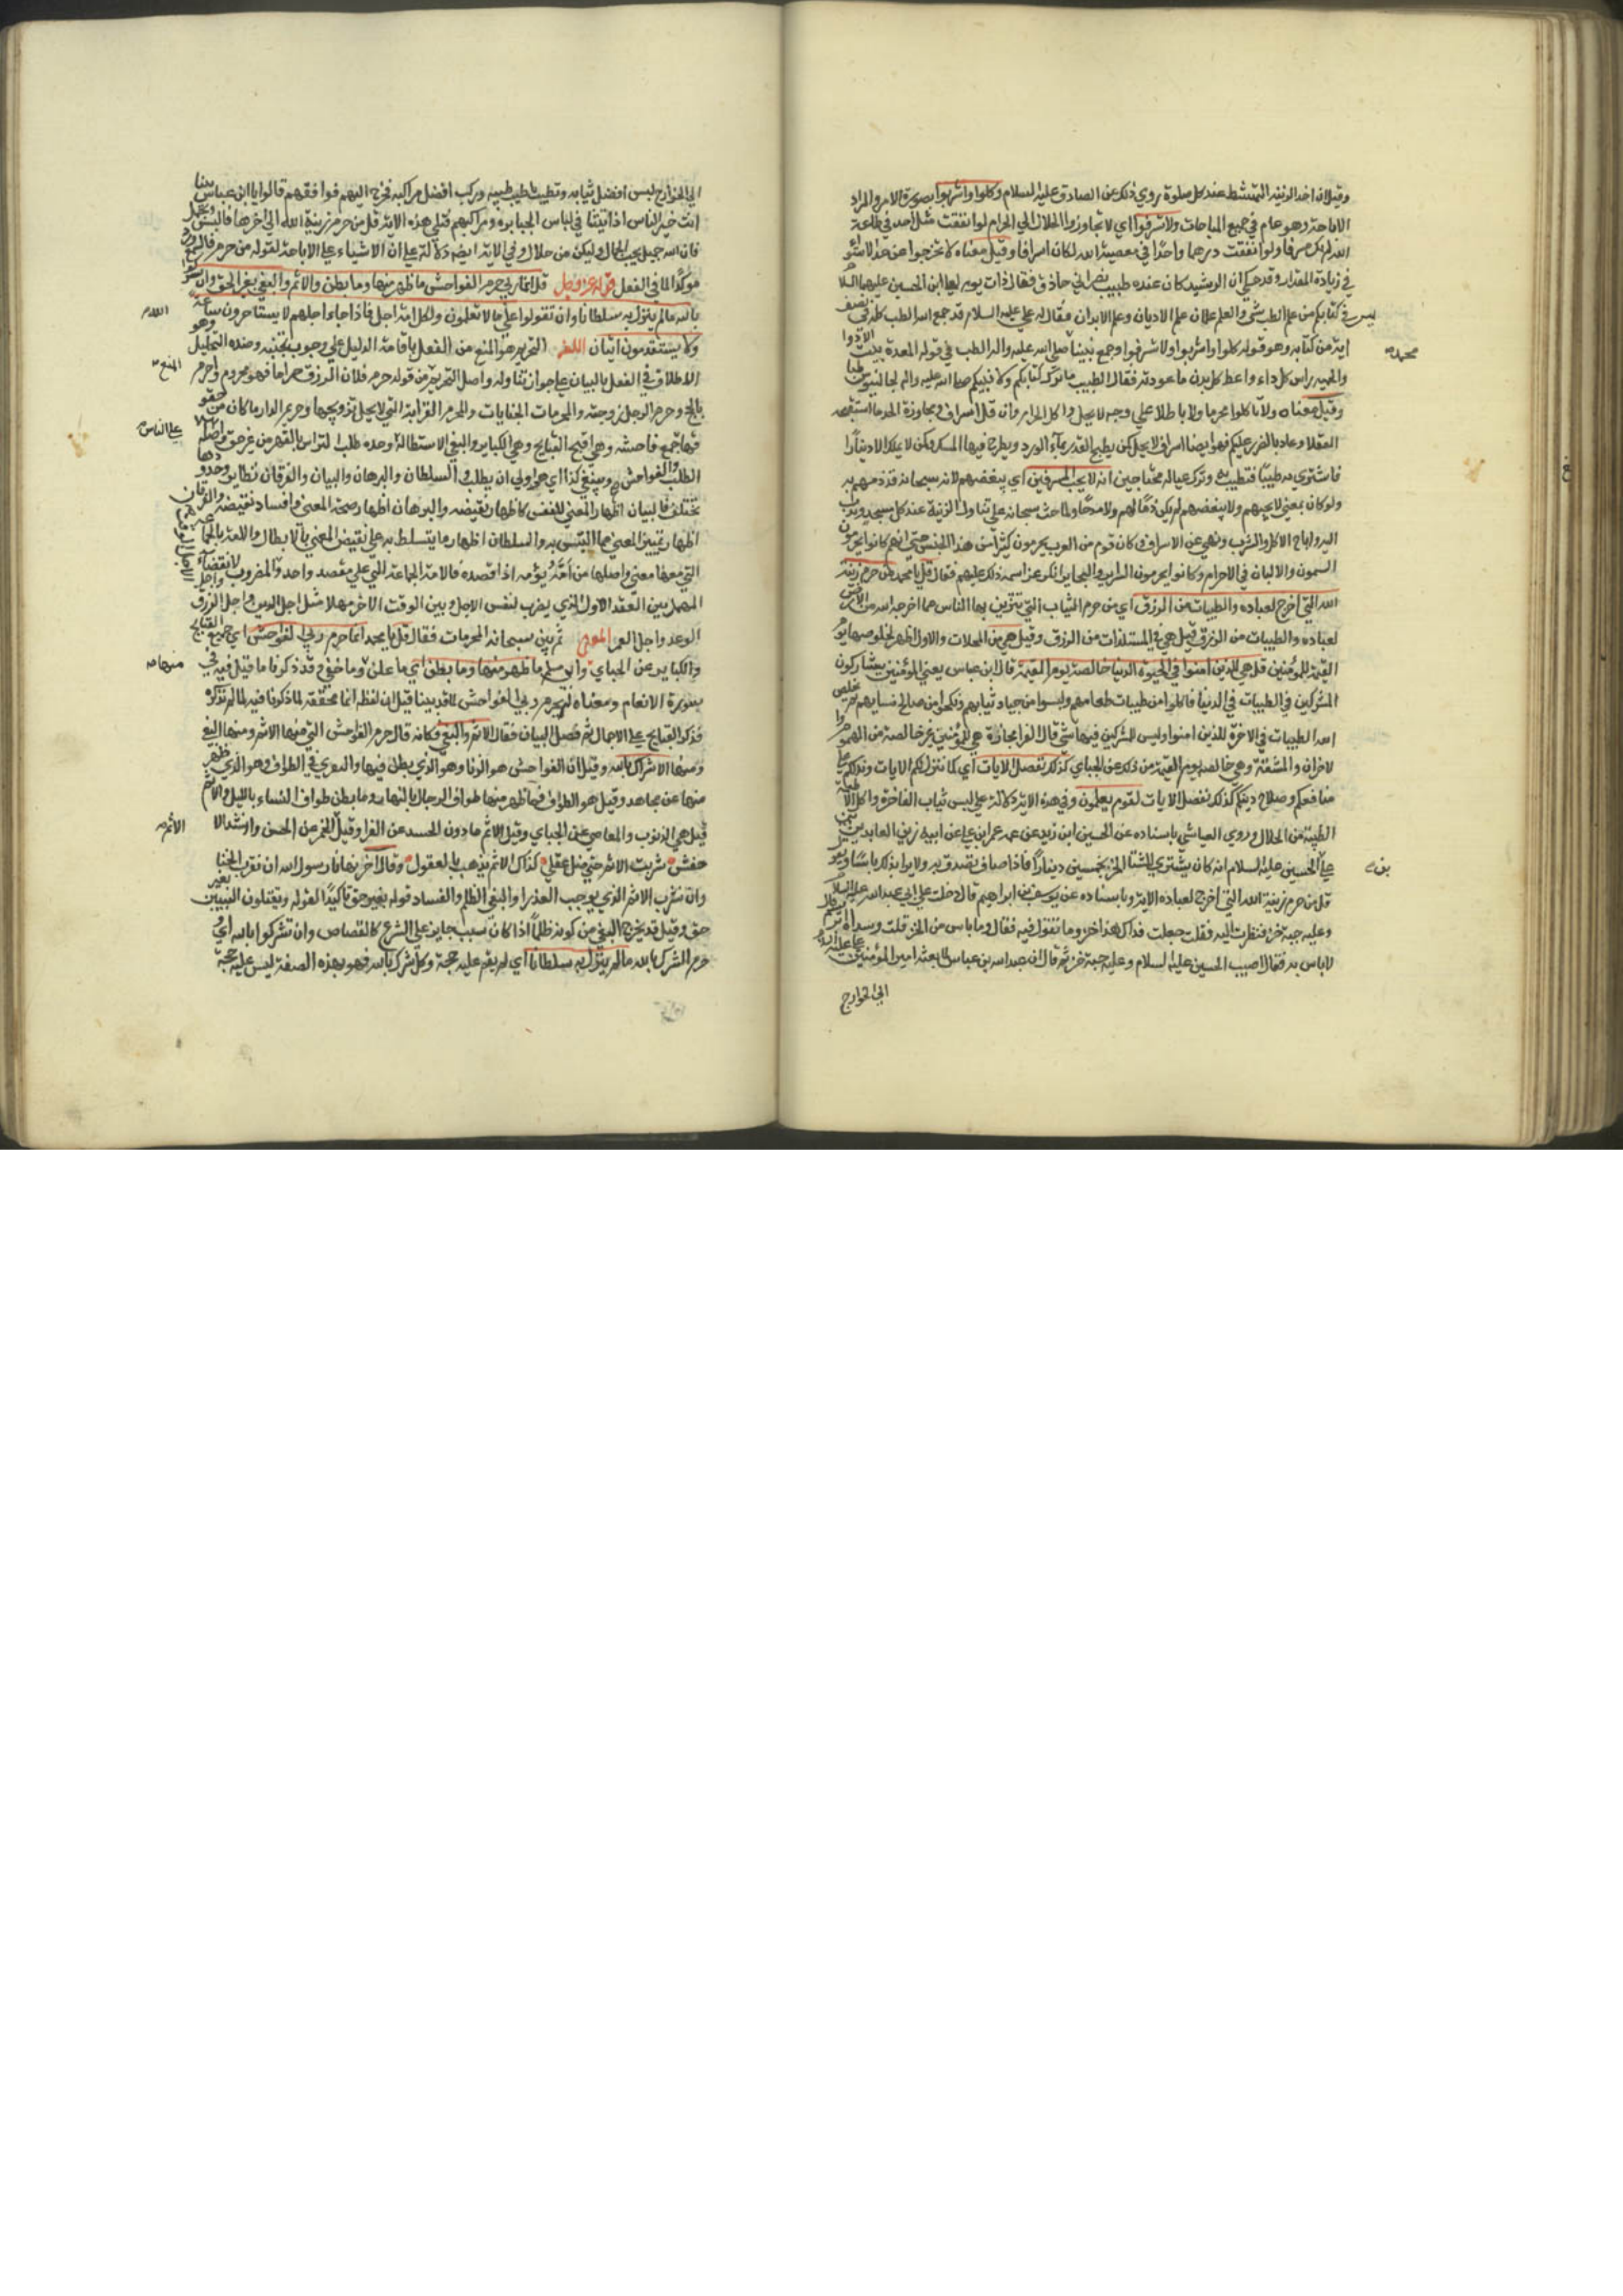 وقيل اخذ الزينة التمشط عند كل صلوة روي ذلك عن الصادق عليه السلام وكلوا واشربوا بصورة الامر والمراد
الاباحة وهو عام في جميع المباحات ولا تسرفوا اي لا تجاوزوا الحلال الي الحرام لو انفقت مثل احد في طاعة
الله لم يكن سرفا ولو انفقت درهما واحدا في معصية الله لكان اسرافا وقيل معناه لا تخرجوا عن حد الاستوا
في زيادة المقدار وقد حكي ان الرشيد كان عنده طبيب نصراني حاذق فقال ذات يوم لعلي ابن الحسين عليهما السلام
ليس في كتابكم من علم الطب شي والعلم علمان علم الاديان وعلم الابدان فقال له علي عليه السلام قد جمع الله الطب كله في نصف
اية من كتابه وهو قوله كلوا واشربوا ولا تسرفوا وجمع نبينا صلي الله عليه واله الطب في قوله المعدة بيت الادوا
محمد
والحمية راس كل داء واعط كل بدن ما عودته فقال الطبيب ما ترك كتابكم ولا نبيكم صلي الله عليه واله لجالينوس طبا
وقيل معناه ولا تاكلوا محرما ولا باطلا علي وجه لا يحل واكل الحرام وان قل اسراف ومجاوزة الحد ما استقبحه
العقلا وعاد بالضرر عليكم فهو ايضا اسراف لا يحل كمن يطبخ القدر بماء الورد ويطرح فيها المسك وكمن لا يملك الا دينارا
فاشتري به طيبا فتطيب به وترك عياله محتاجين انه لا يحب المسرفين اي يبغضهم لانه سبحانه قد ذمهم به
ولو كان بمعني لا يحبهم ولا يبغضهم لم يكن ذما لهم ولا مدحا ولما حث سبحانه علي تناول الزينة عند كل مسجد وندب
اليه واباح الاكل والشرب ونهي عن الاسراف وكان قوم من العرب يحرمون كثيرا من هذا الجنس حتي انهم كانوا يحرمون
السمون والالبان في الاحرام وكانوا يحرمون السوايب والبحاير انكر عز اسمه ذلك عليهم فقال قل يا محمد من حرم زينة
الله التي اخرج لعباده والطيبات من الرزق اي من حرم الثياب التي يتزين بها الناس مما اخرجه الله من الارض
لعباده والطيبات من الرزق قيل هي المستلذات من الرزق وقيل هي من المحللات والاول اظهر لخلوصها يوم
القيمة للمؤمنين قل هي للذين امنوا في الحيوة الدنيا خالصة يوم القيمة قال ابن عباس يعني المؤمنين يشاركون
المشركين في الطيبات في الدنيا فاكلوا من طيبات طعامهم ولبسوا من جياد ثيابهم ونكحوا من صالح نسايهم ثم يخلص
الله الطيبات في الاخرة للذين امنوا وليس للمشركين فيها شي قال الفرا مجازه هي للمؤمنين غير خالصة من الهموم و
الاحزان والمشقة وهي خالصة يوم القيمة من ذلك عن الجباي كذلك نفصل الايات اي كما ننزل لكم الايات وندلكم علي
منافعكم وصلاح دينكم كذلك نفصل الايات لقوم يعلمون وفي هذه الاية دلالة علي لبس ثياب الفاخرة واكل الاطعمة
الطيبة من الحلال وروي العياشي باسناده عن الحسين ابن زيد عن عمه عمر ابن علي عن ابيه زين العابدين
بن
علي الحسين عليه السلام انه كان يشتري كساء الخز بخمسين دينارا فاذا صاف تصدق به ولا يرا بذلك باسا ويقول
قل من حرم زينة الله التي اخرج لعباده الاية وباسناده عن يوسف بن ابراهيم قال دخلت علي ابي عبد الله عليه السلام
وعليه جبة خز فنظرت اليه فقلت جعلت فداك هذا خز وما تقول فيه فقال وما باس من الخز قلت وسداه ابريسم قال
لا باس به فقال اصيب الحسين عليه السلام وعليه جبة خز ثم قال ان عبد الله بن عباس لما بعثه امير المؤمنين
الي الخوارج
الي الخوارج لبس افضل ثيابه وتطيب باطيب طيبه وركب افضل مراكبه فخرج اليهم فوافقهم قالوا يا ابن عباس بينا
انت خير الناس اذ اتيتنا في لباس الجبابرة ومراكبهم فتلي هذه الاية قل من حرم زينة الله الي اخرها فالبس وتجمل
فان الله جميل يحب الجمال وليكن من حلال وفي الاية ايضا دلالة علي ان الاشياء علي الاباحة لقوله من حرم فالسمع ورد
موكدا لما في العقل قوله عز وجل قل انما حرم ربي الفواحش ما ظهر منها وما بطن والاثم والبغي بغير الحق وان تشركوا
الله
بالله ما لم ينزل به سلطانا وان تقولوا علي ما لا تعلمون ولكل امة اجل فاذا جاء اجلهم لا يستاخرون ساعة
ولا يستقدمون ايتان اللغة التحريم هو المنع من الفعل باقامة الدليل علي وجوب تجنبه وضده التحليل وهو
المنع
الاطلاق في الفعل بالبيان علي جواز تناوله واصل التحريم من قوله حرم فلان الرزق حراما فهو محروم واحرم
بالحج وحرم الرجل زوجته والحرمات الجنايات والمحرم القرابة التي لا يحل تزويجها وحريم الدار ما كان من حقوقها
علي الناس
فيها جمع فاحشة وهي اقبح القبايح وهي الكباير والبغي الاستطالة وحده طلب التراس بالقهر من غير حق واصله
الطلب والفواحش وينبغي كذا اي هو اولي ان يطلب والسلطان والبرهان والبيان والفرقان نظاير وحدودها
تختلف فالبيان اظهار المعني للنفس كاظهار نقيضه والبرهان اظهار صحة المعني وافساد نقيضه والفرقان
اظهار تمييز المعني مما التبس به والسلطان اظهار ما يتسلط به علي نقيض المعني بالابطال والامة الجماعة
التي معها معني واصلها من امه يؤمه اذا قصده فالامة الجماعة التي علي مقصد واحد والاجل الوقت المضروب لانقضاء
المهل بين العقد الاول الذي يضرب لنفس الاجل وبين الوقت الاخر مهلا مثل اجل الدين واجل الرزق واجل
الوعد واجل العمر المعني ثم بين سبحانه المحرمات فقال قل يا محمد انما حرم ربي الفواحش اي جميع القبايح
منها
والكباير عن الجباي وابي مسلم ما ظهر منها وما بطن اي ما علن وما خفي وقد ذكرنا ما قيل فيه في
سورة الانعام ومعناه لم يحرم ربي الا الفواحش لما قد بينا قبل ان لفظه انما محققة لما ذكر نافية لما لم يذكر
فذكر القبايح علي الاجمال ثم فصل البيان فقال الاثم والبغي فكانه قال حرم الفواحش التي منها الاثم ومنها البغي
ومنها الاشراك بالله وقيل ان الفواحش هو الزنا وهو الذي بطن فيها والتعري في الطواف وهو الذي ظهر
منها عن مجاهد وقيل هو الطواف فما ظهر منها طواف الرجال بالنهار وما بطن طواف النساء بالليل والاثم
الاثم
قيل هي الذنوب والمعاصي عن الجباي وقيل الاثم ما دون الحسد عن الفرا وقيل الخمر عن الحسن وانشد الا
خفش شربت الاثم حتي ضل عقلي كذاك الاثم يذهب بالعقول وقال اخر نهانا رسول الله ان نقرب الخنا
وان نشرب الاثم الذي يوجب العذرا والبغي الظلم والفساد قوله بغير حق تاكيدا كقوله ويقتلون النبيين بغير
حق وقيل قد يخرج البغي من كونه ظلما اذا كان بسبب جايز علي الشرع كالقصاص وان تشركوا بالله اي و
حرم الشرك بالله ما لم ينزل به سلطانا اي لم يقم عليه حجة وكل شرك بالله فهو بهذه الصفة ليس عليه حجة